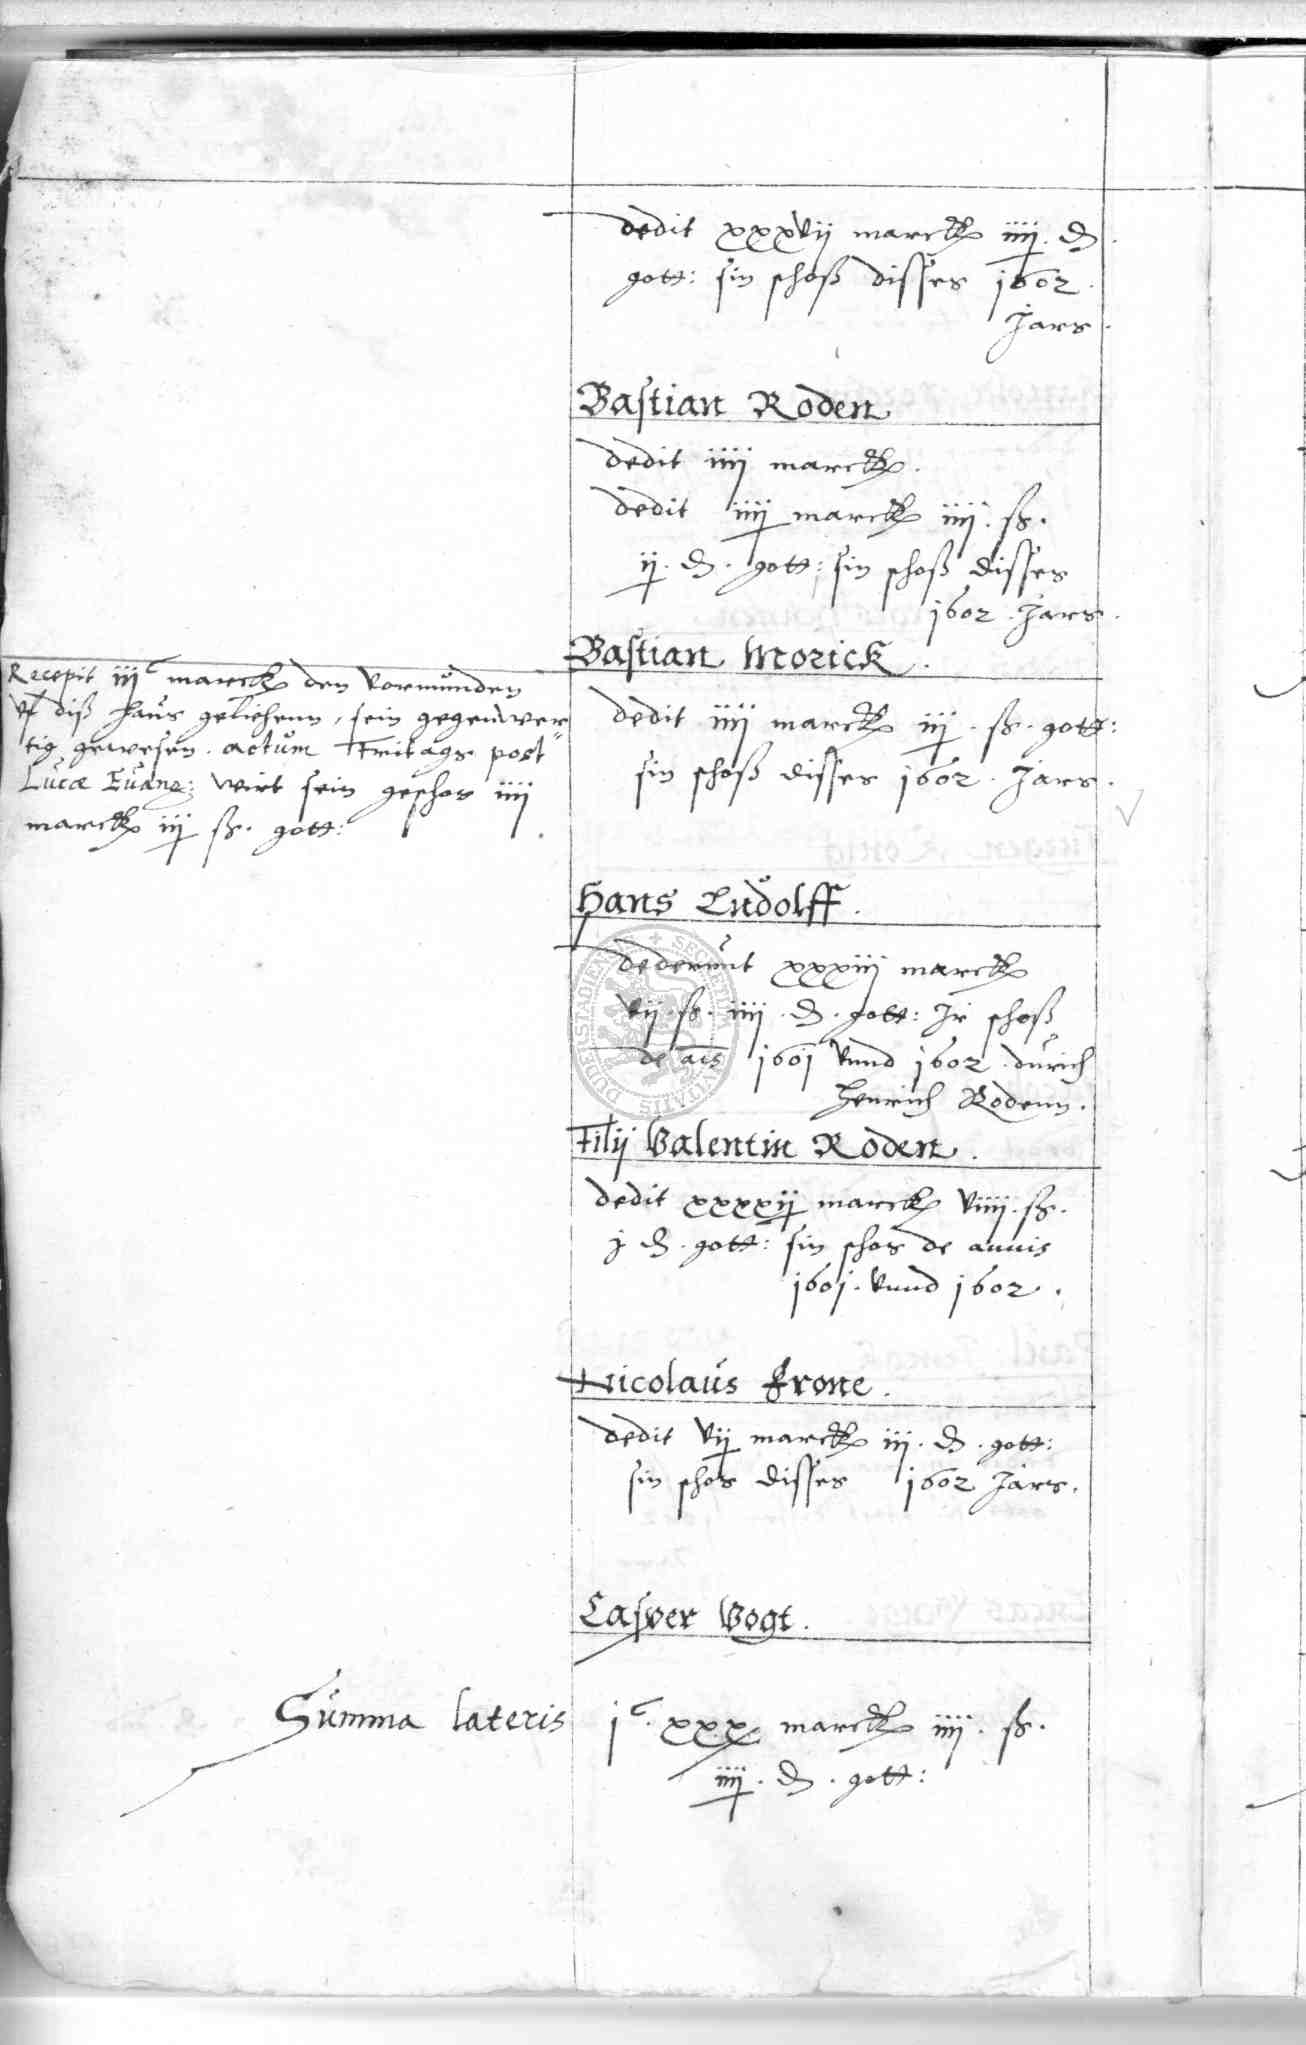 dedit xxxvij marck iiij. d.
gott: sin schoß disses 1602.
Jars.
Bastian Roden
dedit iiij marck.
dedit iiij marck iiij. ß.
ij. d. gott: sin schoß disses
1602. Jars.
Bastian Morick.
Recepit iij c marck den vormunden
vf diß haus geliehenn, sein gegenwer
tig gewesen. actum Fritags post
Lucæ Evang: wirt sein geschos iiij
marck iij ß. gott:
dedit iiij marck iij. ß. gott:
sin schoß disses 1602. Jars.
Hans Ludolff.
dederunt xxxiij marck
vij. ß. iiij. d. gott: Ir schoß
de ais 1601 vnnd 1602. durich
Henrich Rodenn.
Filij Valentin Roden.
dedit xxxxij marck viiij. ß.
j d. gott: sin schos de annis
1601. vnnd 1602.
Nicolaus Frone.
dedit vij marck iij. d. gott:
sin schos disses 1602 Jars.
Casper Vogt.
Summa lateris j c. xxx marck iiij. ß.
iiij. d. gott: